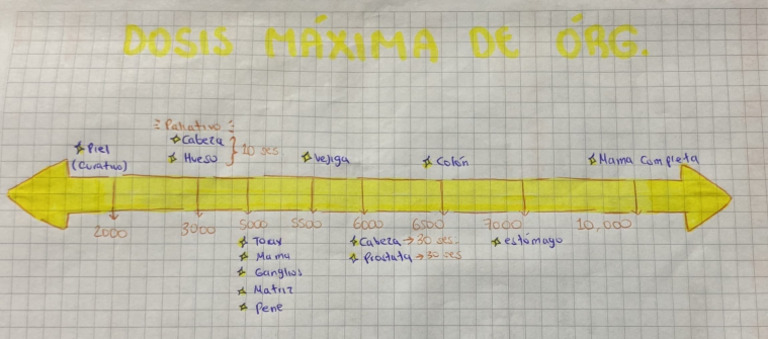 DOSIS MÁXIMA DE ÓRG.
Paliativo
Piel
(Curativo)
Cabeza
Hueso
10 ses
Vejiga
Colón
Mama Completa
2000
3000
5000
5500
6000
6500
7000
10,000
Torax
Mama
Ganglios
Matriz
Pene
Cabeza → 30 ses.
Prostata → 30 ses
estómago